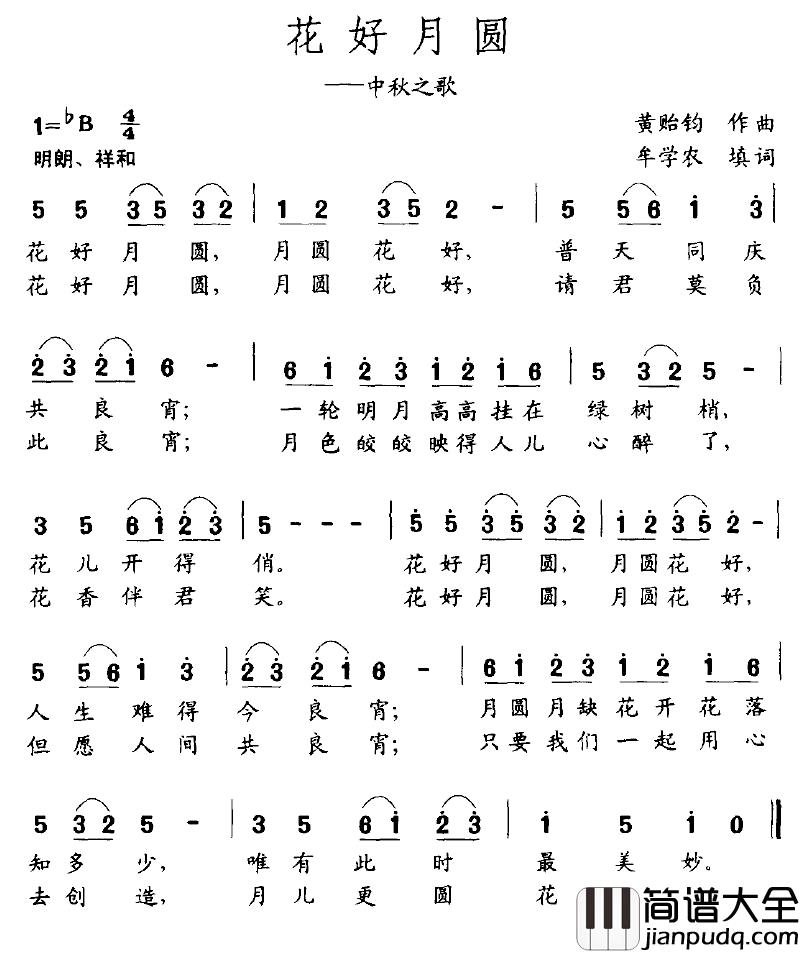 花好月圆
——中秋之歌
1=♭B 4/4
黄贻钧 作曲
明朗、祥和
牟学农 填词
5 5 3 5 3 2 | 1 2 3 5 2 - | 5 5 6 i 3̇ |
花 好 月 圆, 月 圆 花 好, 普 天 同 庆
花 好 月 圆, 月 圆 花 好, 请 君 莫 负
2̇ 3̇ 2̇ i 6 - | 6 i 2̇ 3̇ i 2̇ i 6 | 5 3 2 5 - |
共 良 宵; 一 轮 明 月 高 高 挂 在 绿 树 梢,
此 良 宵; 月 色 皎 皎 映 得 人 儿 心 醉 了,
3 5 6 i 2̇ 3̇ | 5 - - - | 5̇ 5̇ 3̇ 5̇ 3̇ 2̇ | i 2̇ 3̇ 5̇ 2̇ - |
花 儿 开 得 俏。 花 好 月 圆, 月 圆 花 好,
花 香 伴 君 笑。 花 好 月 圆, 月 圆 花 好,
5 5 6 i 3̇ | 2̇ 3̇ 2̇ i 6 - | 6 i 2̇ 3̇ i 2̇ i 6 |
人 生 难 得 今 良 宵; 月 圆 月 缺 花 开 花 落
但 愿 人 间 共 良 宵; 只 要 我 们 一 起 用 心
5 3 2 5 - | 3 5 6 i 2̇ 3̇ | i 5 i 0 ‖
知 多 少, 唯 有 此 时 最 美 妙。
去 创 造, 月 儿 更 圆 花
简谱大全
jianpudq.com